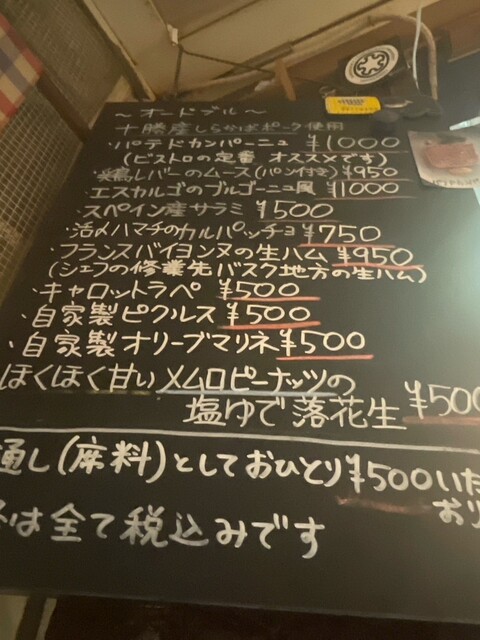 ～オードブル～
十勝産しらかばポーク使用
・パテドカンパーニュ ¥1000
(ビストロの定番 オススメです)
・鶏レバーのムース(パン付き) ¥950
・エスカルゴのブルゴーニュ風 ¥1000
・スペイン産サラミ ¥500
・活〆ハマチのカルパッチョ ¥750
・フランスバイヨンヌの生ハム ¥950
(シェフの修業先バスク地方の生ハム)
・キャロットラペ ¥500
・自家製ピクルス ¥500
・自家製オリーブマリネ ¥500
ほくほく甘いメムロピーナッツの
塩ゆで落花生 ¥500
通し(席料)としておひとり¥500いた
おり
は全て税込みです